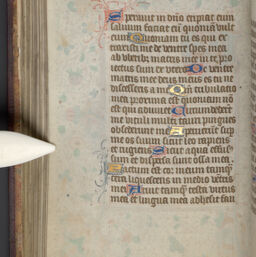 Speravit in dno eripiat eum
saluum faciat eum quoniam vult
eum Quoniam tu es qui ex
traxisti me de ventre spes mea
ab uberib; matris mee in te pro
iectus sum ex utero De ventre
matris mee deus meus es tu ne
discesseris a me Qm tribulatio
mea proxima est quoniam no
est qui adiuvet Circumdederut
me vituli multi tauri pingues
obsederunt me Aperuerut sup
me os suum sicut leo rapiens
et rugiens Sicut aqua effus
sum et dispersa sunt ossa mea.
Factum est cor meum tamq;
cera liquescens in medio ventris
mei Aruit tamq; testa virtus
mea et lingua mea adhesit fau